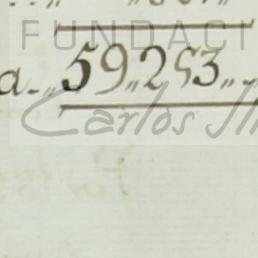 FUNDACI
a.. „ 59„253„.„
Carlos